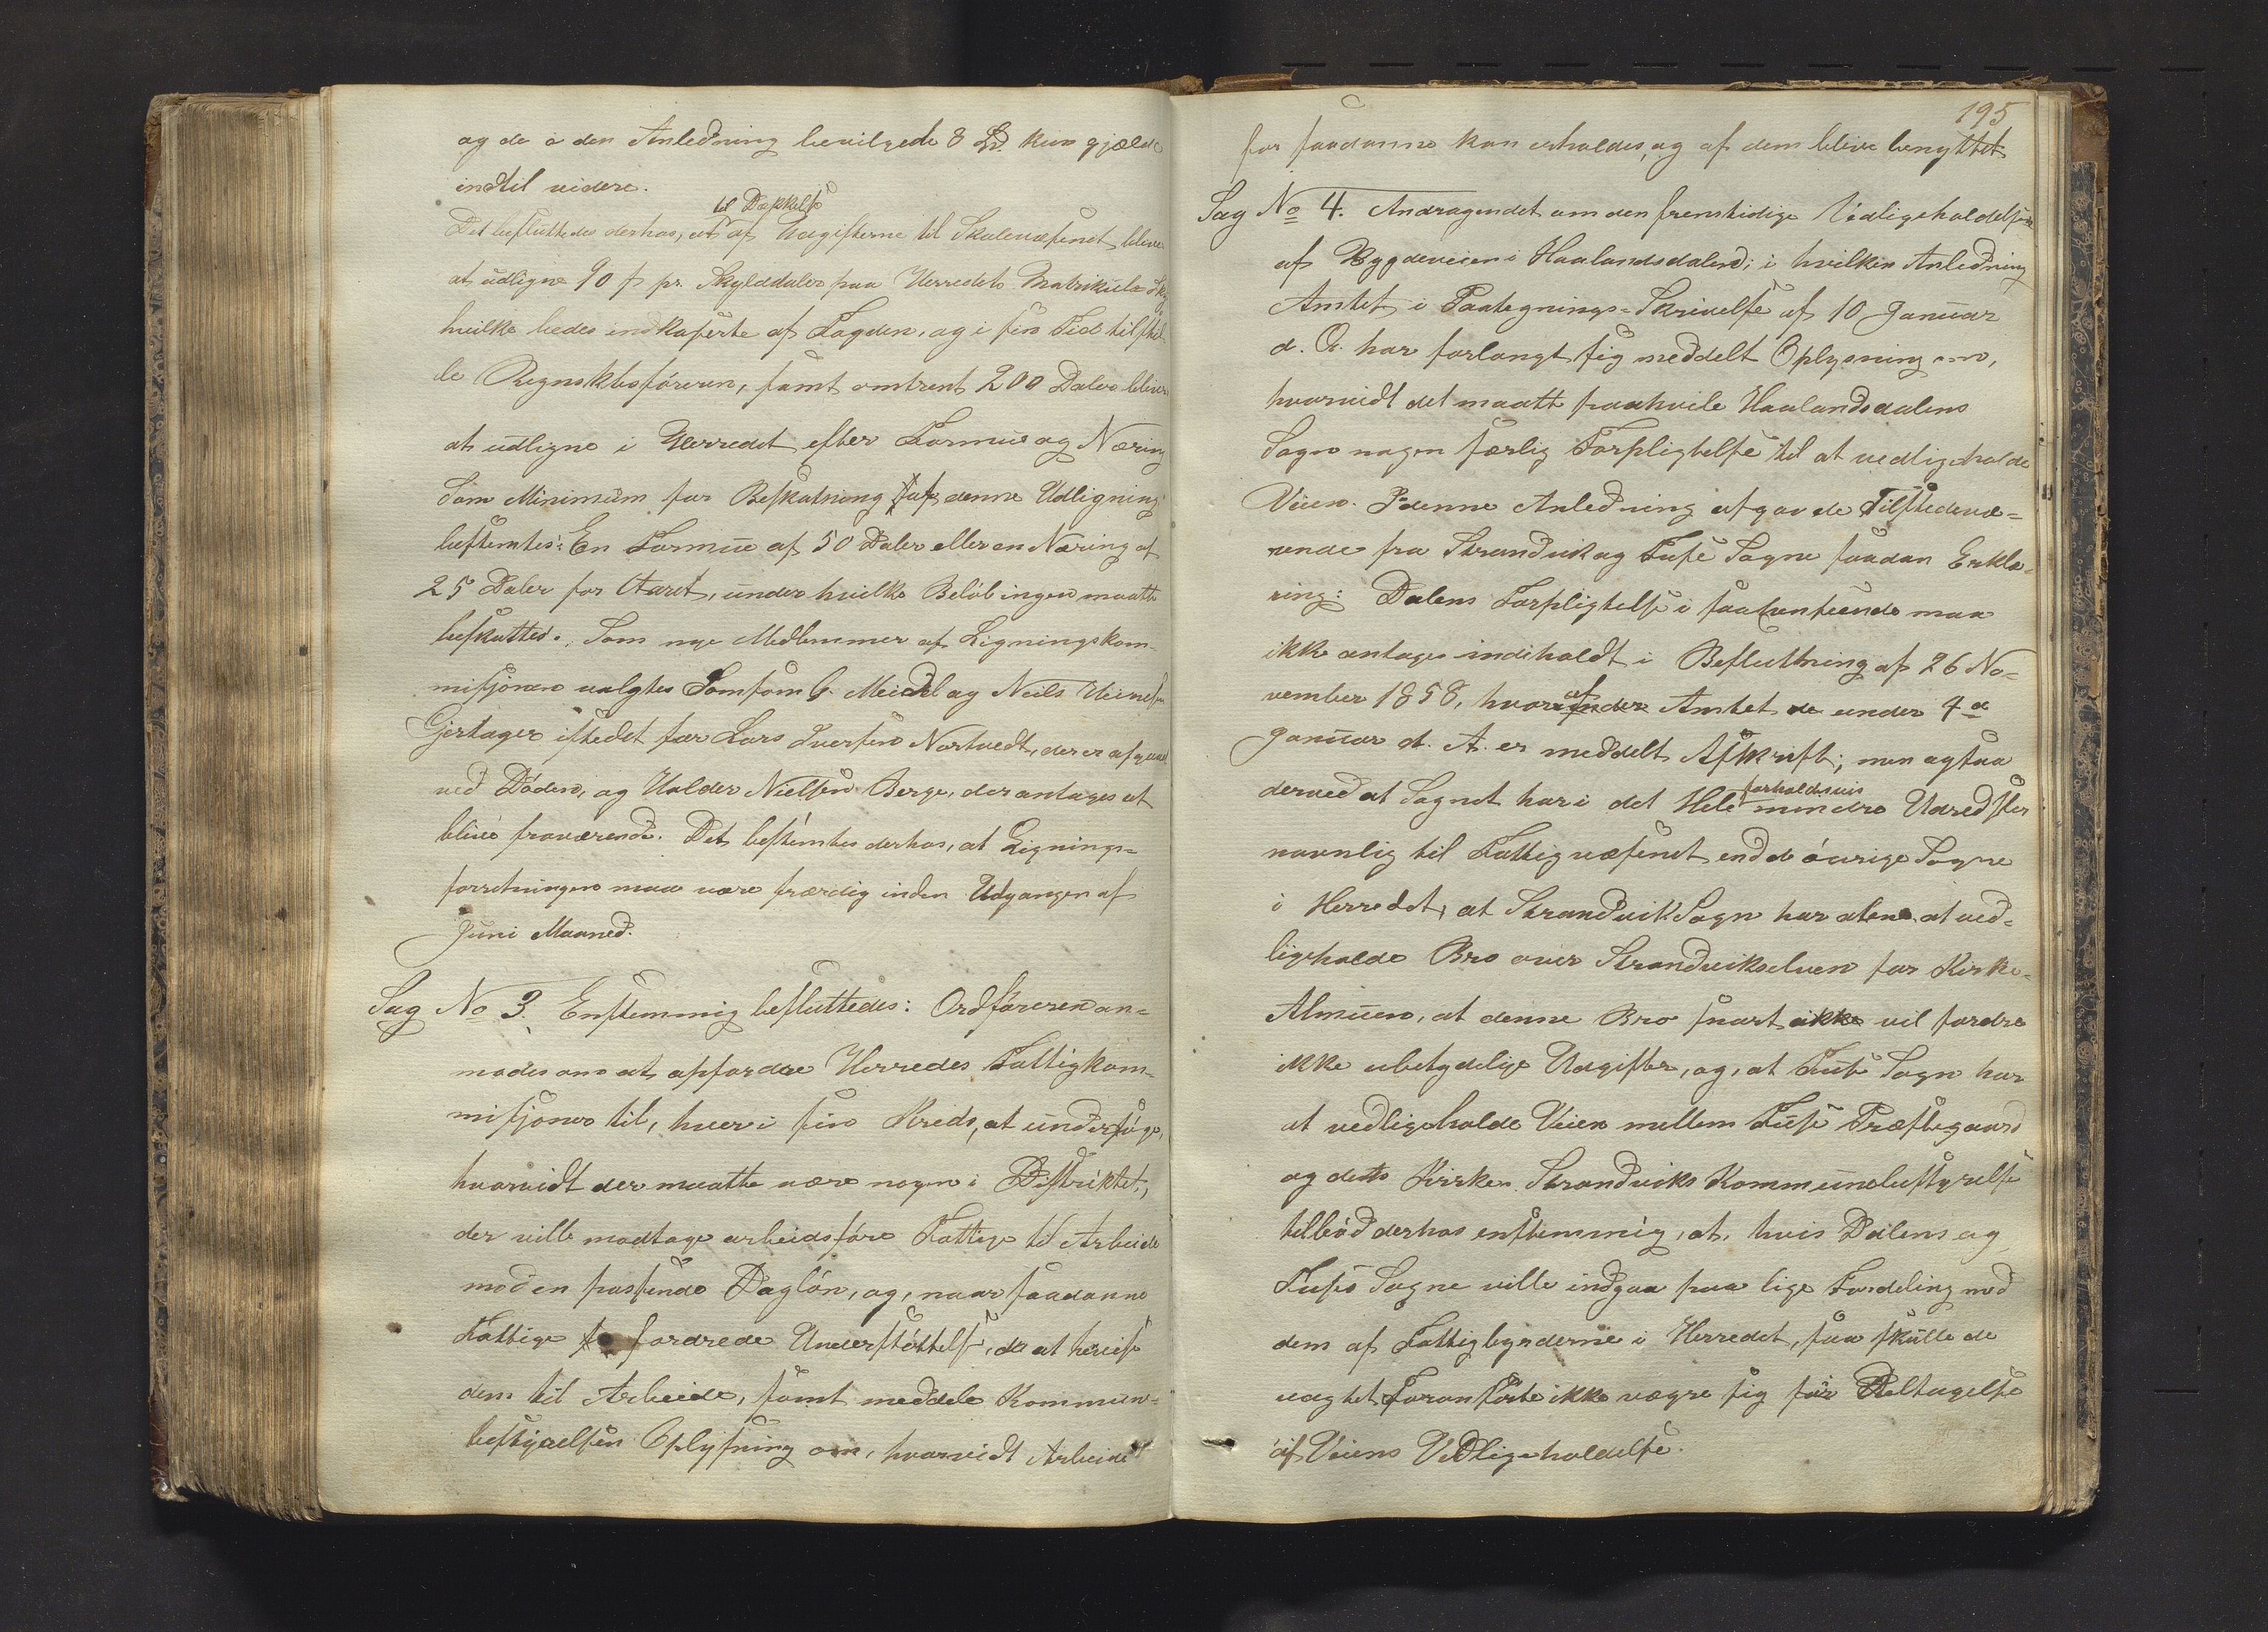 og de i den Anledning bevilgede 8 Sp. kun gjælde
indtil videre.
til Dækkelse
Det besluttedes derhos, at af Udgifterne til Skolevæsenet bliver
at udligne 90 s pr. Skylddaler paa Herredets Matrikul-Sky
hvilke bedes indkaserte af Fogden, og i sin Tid tilstil
le Regnskbsføreren, samt omtrent 200 Daler bliver
at udligne i Herredet efter Formue og Næring
Som Minimum for Beskatning af denne Udligning
bestemtes: En Formue af 50 Daler eller en Næring af
25 Daler for Aaret, under hvilke Beløb ingen maatte
beskattes. Som nye Medlemmer af Ligningskom-
misjonen valgtes Samson G. Meidel og Neils
Gjertager istedet for Lars Iversen Nortvedt, der er afgaaet
ved Døden, og Halder Nielsen Berge, der antages at
blive fraværende. Det bestemtes derhos, at Lignings-
forretningen maa være færdig inden Udgangen af
Juni Maaned.
Sag No 3. Enstemmig besluttedes: Ordføreren an-
modes om at opfordre Herredes Fattigkom-
misjoner til, hver i sin Kreds, at undersøge,
hvorvidt der maatte være nogen i Distriktet,
der ville modtage arbeidsføre Fattige til Arbeide
mod en passende Dagløn, og, naar saadanne
Fattige fordrede Understøttelse, da at henvise
dem til Arbeide, samt meddele Kommune-
bestyrelsen Oplysning om, hvorvidt Arbeide
195
for saadanne kan erholdes, og af dem blive benyttet
Sag No 4. Andragendet om den fremtidige Vedligeholdelse
af Bygdeveien i Haalandsdalen; i hvilken Anledning
Amtet i Paategnings-Skrivelse af 10 Januar
d. A. har forlangt sig meddelt Oplysning om,
hvorvidt det maatte paahvile Haalandsdalens
Sogn nogen særlig Forpligtelse til at vedligeholde
Veien. I denne Anledning afgav de Tilstedevæ-
rende fra Strandvik og Fuse Sogne saadan Erklæ-
ring: Dalens Forpligtelse i saahenseende maa
ikke antages indeholdt i Beslutning af 26 No-
vember 1858, hvoraf Amtet under 4de
Januar d. A. er meddelt Afskrift; men ogsaa
forholdsvis
derved at Sognet har i det Hele mindre Udredsler
navnlig til Fattigvæsenet end de øvrige Sogne
i Herredet, at Strandvik Sogn har alene at ved-
ligeholde Bro over Strandvikselven for Kirke-
Almuen, at denne Bro snart vil fordre
ikke ubetydelige Udgifter, og, at Fuse Sogn har
at vedligeholde Veien mellem Fuse Præstegaard
og dets Kirke. Strandviks Kommunebestyrelse
tilbød derhos enstemmig, at, hvis Dalens og
Fuses Sogne ville indgaa paa lige Fordeling med
dem af Fattigbyrderne i Herredet, saa skulle de
uagtet Foranførte ikke vægre sig for Deltagelse
af Veiens Vedligeholdelse.